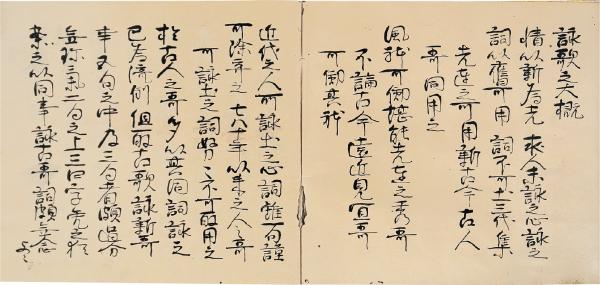 詠歌之大概
情以新為先 求人未詠之心詠之
詞以舊可用 詞不可出三代集
先達之所用新古今古人
哥同用之
風躰可効堪能先達之秀哥
不論古今遠近見宜哥
可効其躰
近代之人所詠出之心詞雖一句謹
可除弃之 七八十年以来之人之哥
所詠出之詞努々不可取用之
於古人之哥多以其同詞詠之
已為流例但取古歌詠新哥
事五句之中及三句者頗過分
無珎氣二句之上三四字免之猶
案之以同事詠古哥詞頗無念
歟